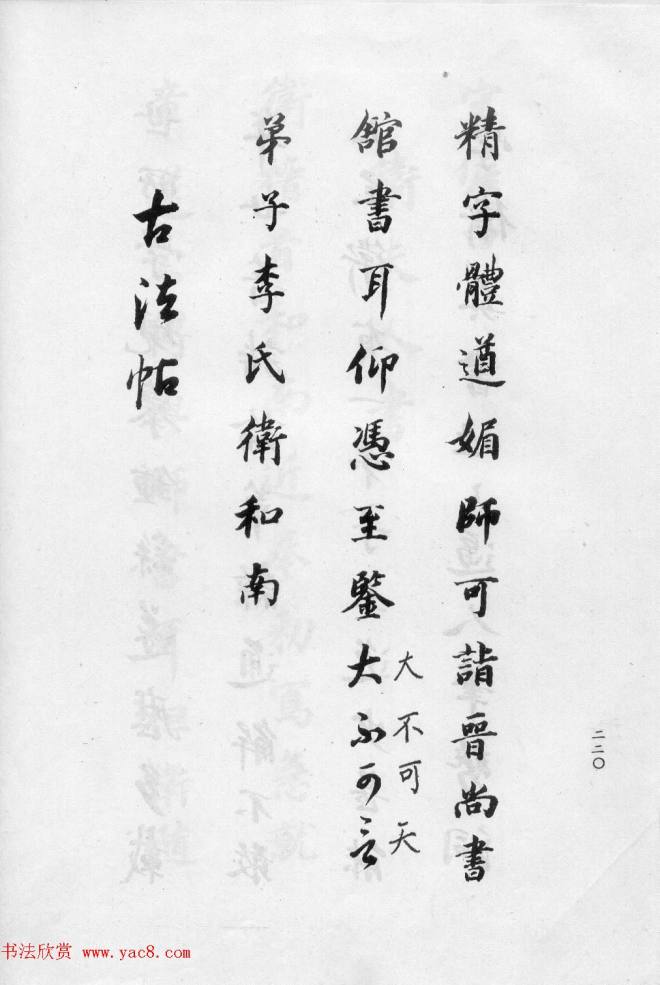 精字體遒媚師可詣晉尚書
舘書耳仰憑至鑒大不可言
大不可天
弟子李氏衛和南
古法帖
二二〇
书法欣赏 www.yac8.com